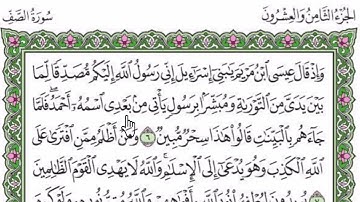 الجُزْءُ الثَّامِنُ وَالعِشْرُونَ
سُورَةُ الصَّفِّ
وَإِذْ قَالَ عِيسَى ابْنُ مَرْيَمَ يَٰبَنِىٓ إِسْرَٰٓءِيلَ إِنِّى رَسُولُ ٱللَّهِ إِلَيْكُم مُّصَدِّقًا لِّمَا
بَيْنَ يَدَىَّ مِنَ ٱلتَّوْرَىٰةِ وَمُبَشِّرًۢا بِرَسُولٍ يَأْتِى مِنۢ بَعْدِى ٱسْمُهُۥٓ أَحْمَدُ ۖ فَلَمَّا
جَآءَهُم بِٱلْبَيِّنَٰتِ قَالُوا۟ هَٰذَا سِحْرٌ مُّبِينٌ ٦ وَمَنْ أَظْلَمُ مِمَّنِ ٱفْتَرَىٰ عَلَى
ٱللَّهِ ٱلْكَذِبَ وَهُوَ يُدْعَىٰٓ إِلَى ٱلْإِسْلَٰمِ ۚ وَٱللَّهُ لَا يَهْدِى ٱلْقَوْمَ ٱلظَّٰلِمِينَ